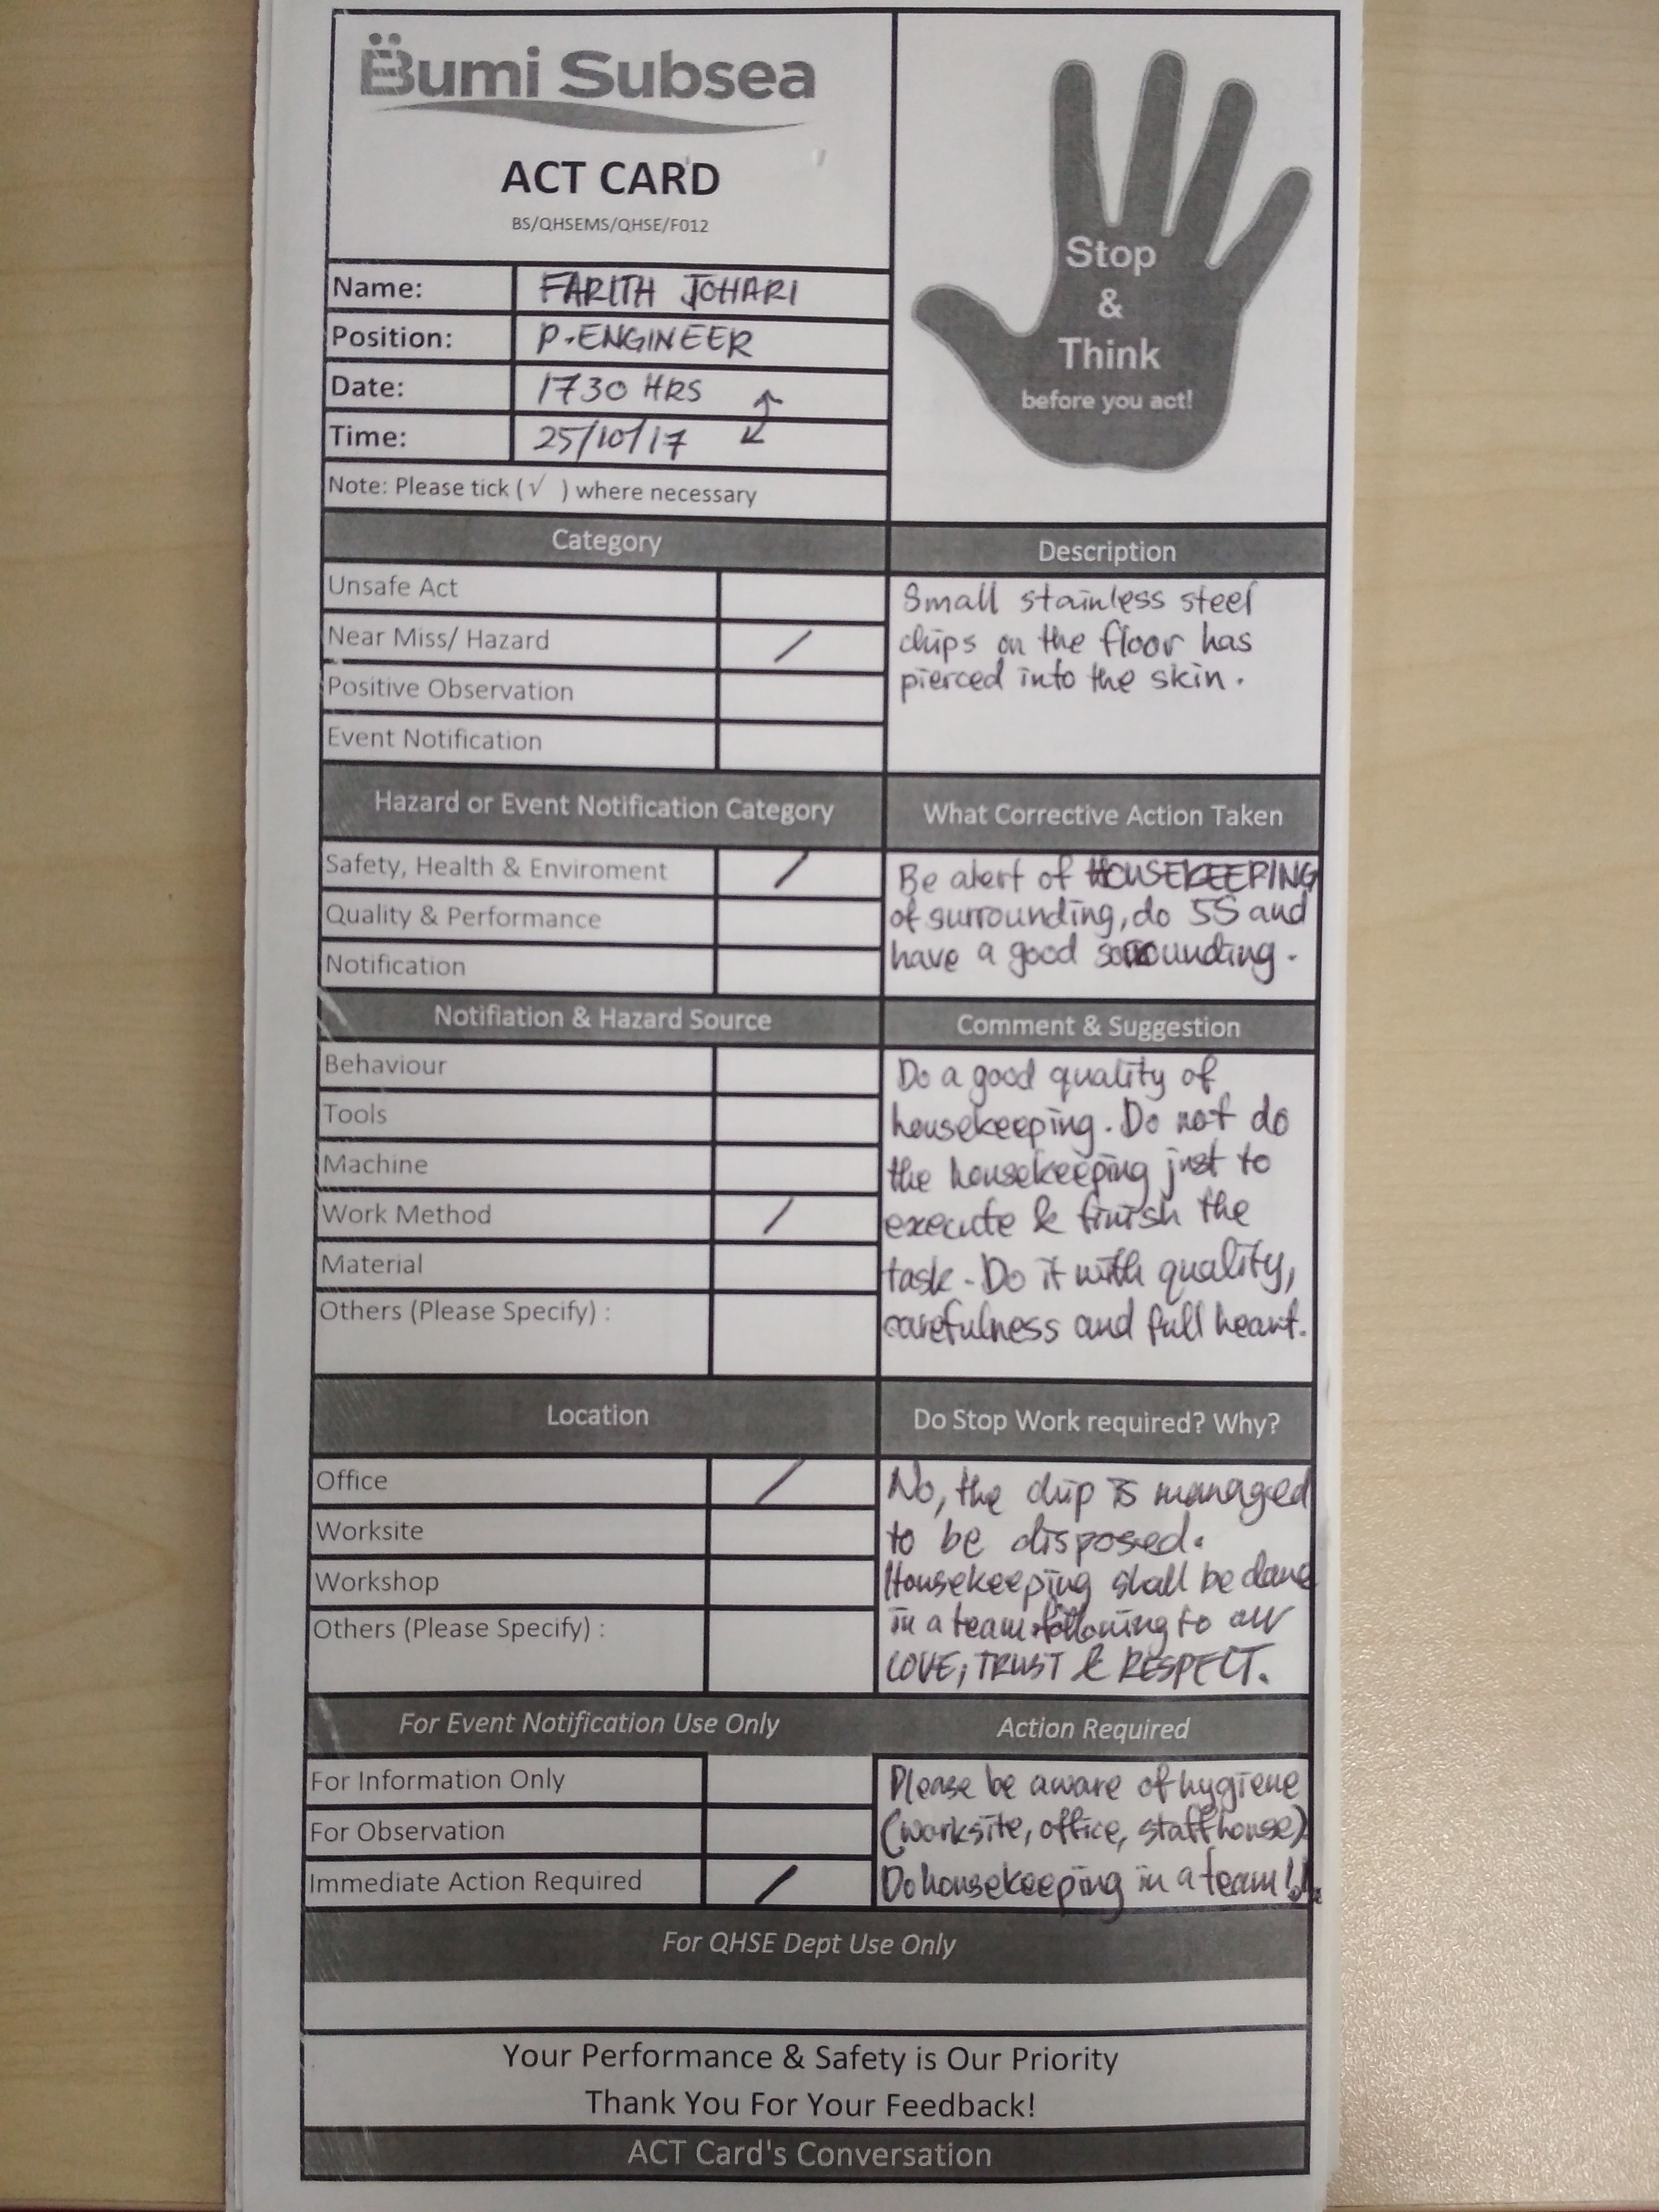 Bumi Subsea
ACT CARD
BS/QHSEMS/QHSE/F012
Stop
&
Think
before you act!
Name: FARITH JOHARI
Position: P.ENGINEER
Date: 1730 HRS
Time: 25/10/17
Note: Please tick (√ ) where necessary
Category
Unsafe Act
Near Miss/ Hazard /
Positive Observation
Event Notification
Description
Small stainless steel
chips on the floor has
pierced into the skin.
Hazard or Event Notification Category
Safety, Health & Enviroment /
Quality & Performance
Notification
What Corrective Action Taken
Be alert of HOUSEKEEPING
of surrounding, do 5S and
have a good sorrounding.
Notifiation & Hazard Source
Behaviour
Tools
Machine
Work Method /
Material
Others (Please Specify) :
Comment & Suggestion
Do a good quality of
housekeeping. Do not do
the housekeeping just to
execute & finish the
task. Do it with quality,
carefulness and full heart.
Location
Office /
Worksite
Workshop
Others (Please Specify) :
Do Stop Work required? Why?
No, the chip is managed
to be disposed.
Housekeeping shall be done
in a team following to our
LOVE, TRUST & RESPECT.
For Event Notification Use Only
For Information Only
For Observation
Immediate Action Required /
Action Required
Please be aware of hygiene
(worksite, office, staffhouse).
Do housekeeping in a team!!
For QHSE Dept Use Only
Your Performance & Safety is Our Priority
Thank You For Your Feedback!
ACT Card's Conversation